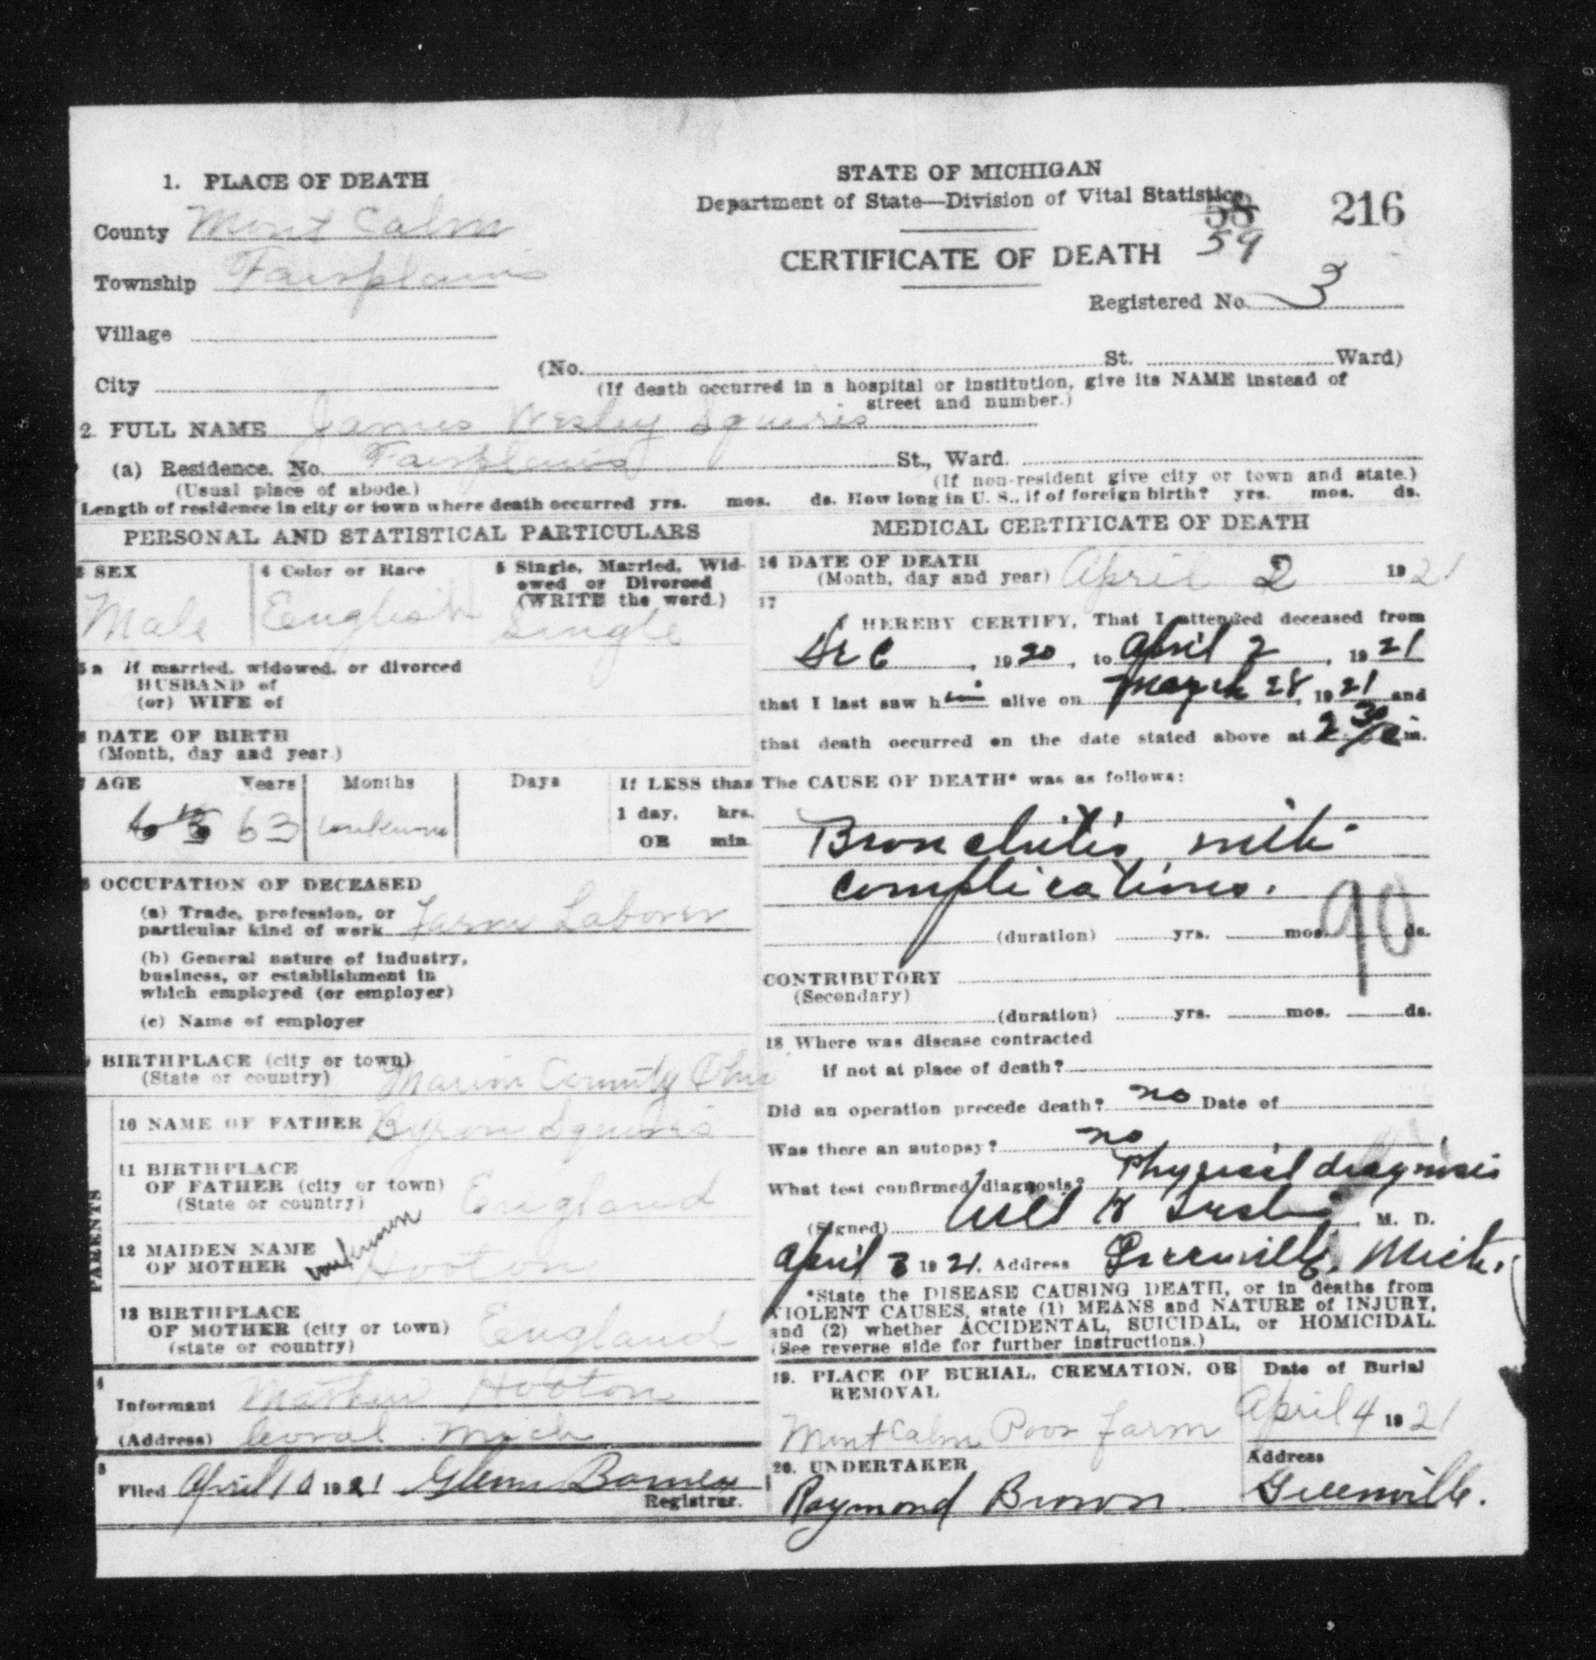 STATE OF MICHIGAN
Department of State—Division of Vital Statistics
58 216
59
CERTIFICATE OF DEATH
Registered No. 3
1. PLACE OF DEATH
County Mont Calm
Township Fairplains
Village
City
(No. St. Ward)
(If death occurred in a hospital or institution, give its NAME instead of
street and number.)
2. FULL NAME James Wesley Squiers
(a) Residence. No. Fairplains St., Ward.
(Usual place of abode.) (If non-resident give city or town and state.)
Length of residence in city or town where death occurred yrs. mos. ds. How long in U. S., if of foreign birth? yrs. mos. ds.
PERSONAL AND STATISTICAL PARTICULARS
3 SEX
Male
4 Color or Race
English
5 Single, Married, Wid-
owed or Divorced
(WRITE the word.)
Single
5a If married, widowed, or divorced
HUSBAND of
(or) WIFE of
6 DATE OF BIRTH
(Month, day and year.)
7 AGE Years Months Days If LESS than
1 day, hrs.
OR min.
63 unknown
8 OCCUPATION OF DECEASED
(a) Trade, profession, or
particular kind of work Farm Laborer
(b) General nature of industry,
business, or establishment in
which employed (or employer)
(c) Name of employer
9 BIRTHPLACE (city or town)
(State or country) Marion County Ohio
PARENTS
10 NAME OF FATHER Byron Squiers
11 BIRTHPLACE
OF FATHER (city or town)
(State or country) England
12 MAIDEN NAME
OF MOTHER unknown Hooton
13 BIRTHPLACE
OF MOTHER (city or town)
(state or country) England
4
Informant Mathew Hooton
(Address) Coral Mich
5
Filed April 10 1921 Glenn Barnes
Registrar.
MEDICAL CERTIFICATE OF DEATH
16 DATE OF DEATH
(Month, day and year) April 2 1921
17
I HEREBY CERTIFY, That I attended deceased from
Dec , 1920, to April 2 , 1921
that I last saw him alive on March 28, 1921 and
that death occurred on the date stated above at 2 30 m.
The CAUSE OF DEATH* was as follows:
Bronchitis with
complications.
(duration) yrs. mos. ds.
90
CONTRIBUTORY
(Secondary)
(duration) yrs. mos. ds.
18 Where was disease contracted
if not at place of death?
Did an operation precede death? no Date of
Was there an autopsy? no
What test confirmed diagnosis? Physical diagnosis
(Signed) M. D.
April 3 1921. Address Greenville, Mich.
*State the DISEASE CAUSING DEATH, or in deaths from
VIOLENT CAUSES, state (1) MEANS and NATURE of INJURY,
and (2) whether ACCIDENTAL, SUICIDAL, or HOMICIDAL.
(See reverse side for further instructions.)
19. PLACE OF BURIAL, CREMATION, OR
REMOVAL
Mont Calm Poor Farm
Date of Burial
April 4 1921
20. UNDERTAKER
Raymond Brown
Address
Greenville.